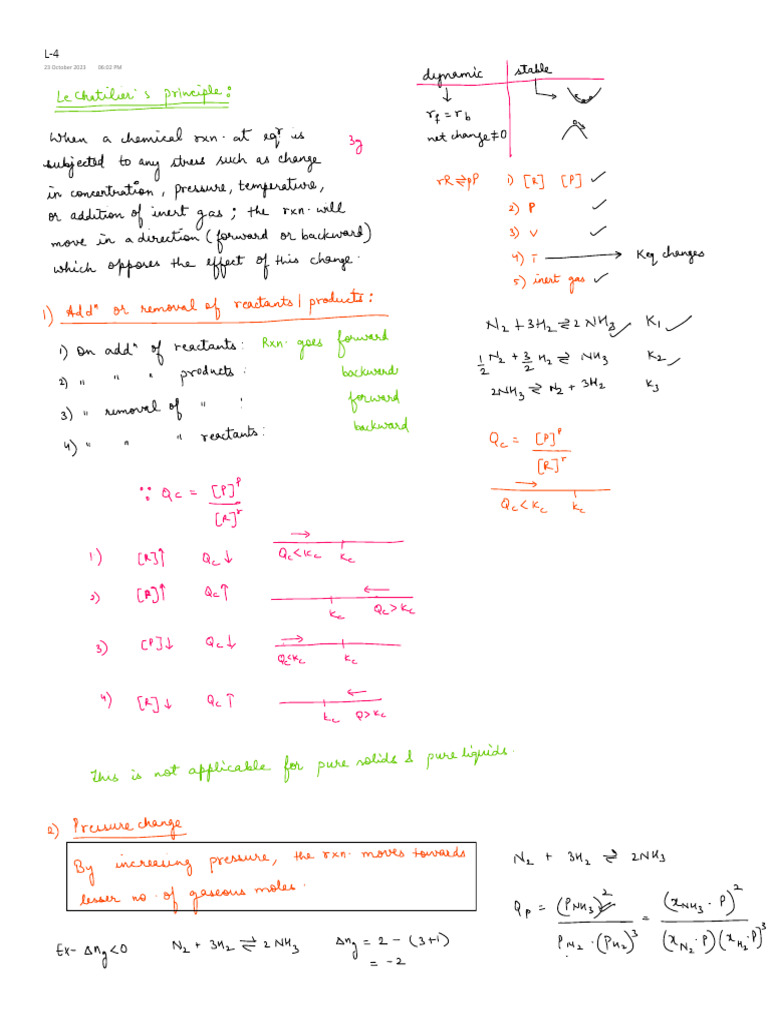 L-4
23 October 2023 06:02 PM
Le Chatilier's principle:
When a chemical rxn. at eqᵐ is
subjected to any stress such as change
in concentration, pressure, temperature,
or addition of inert gas; the rxn. will
move in a direction (forward or backward)
which opposes the effect of this change.
3g
dynamic stable
r_f = r_b
net change ≠ 0
rR ⇌ pP 1) [R] [P] ✓
2) P ✓
3) V ✓
4) T → Keq changes
5) inert gas ✓
1) Addⁿ or removal of reactants/products:
1) On addⁿ of reactants: Rxn. goes forward
2) " " " products: backward
3) " removal of " : forward
4) " " " reactants: backward
N₂ + 3H₂ ⇌ 2NH₃ ✓ K₁ ✓
1/2 N₂ + 3/2 H₂ ⇌ NH₃ K₂ ✓
2NH₃ ⇌ N₂ + 3H₂ K₃
Q_c = [P]^p / [R]^r
→
Q_c < K_c K_c
∵ Q_c = [P]^p / [R]^r
1) [R]↑ Q_c ↓ → Q_c < K_c K_c
2) [R]↑ Q_c ↑ ← K_c Q_c > K_c
3) [P]↓ Q_c ↓ → Q_c < K_c K_c
4) [R]↓ Q_c ↑ ← K_c Q > K_c
This is not applicable for pure solids & pure liquids.
2) Pressure change
By increasing pressure, the rxn. moves towards
lesser no. of gaseous moles.
Ex- Δn_g < 0 N₂ + 3H₂ ⇌ 2NH₃ Δn_g = 2 - (3+1)
= -2
N₂ + 3H₂ ⇌ 2NH₃
Q_p = (P_NH₃)² / P_N₂ · (P_H₂)³ = (x_NH₃ · P)² / (x_N₂ · P) (x_H₂ · P)³